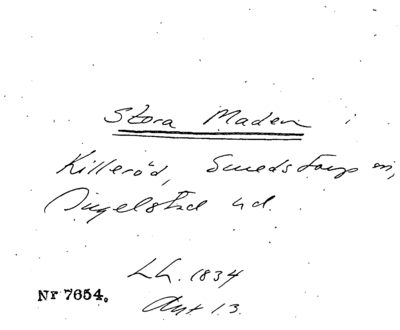 Stora Maden i
Killeröd, Smedstorps sn,
Ingelstad hd.
Lh. 1834
Nr 7654.
Akt 13.